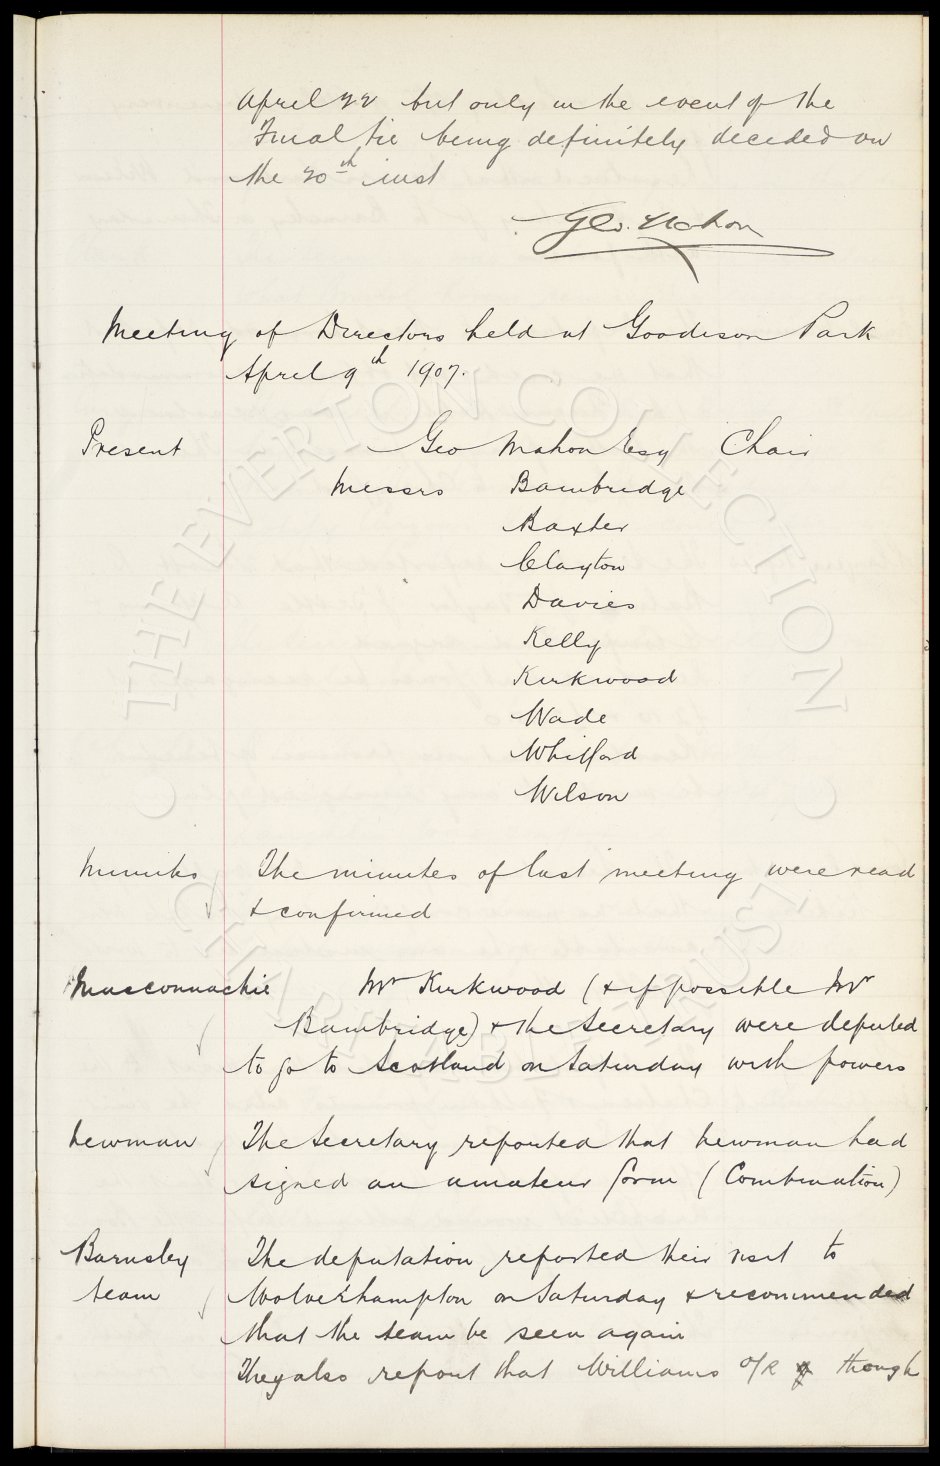 April 22 but only in the event of the
Final tie being definitely decided on
the 20th inst
Geo. Mahon
Meeting of Directors held at Goodison Park
April 9th 1907.
Present Geo Mahon Esq Chair
Messrs Bainbridge
Baxter
Clayton
Davies
Kelly
Kirkwood
Wade
Whitford
Wilson
Minutes The minutes of last meeting were read
& confirmed
Macconnachie Mr Kirkwood (& if possible Mr
Bainbridge) & the Secretary were deputed
to go to Scotland on Saturday with powers
Newman The Secretary reported that Newman had
signed an amateur form (Combination)
Barnsley The deputation reported their visit to
team Wolverhampton on Saturday & recommended
that the team be seen again
They also report that Williams o/R though
THE EVERTON COLLECTION
CHARITABLE TRUST